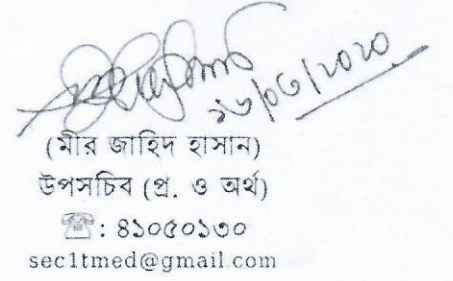 ১৬/০৬/২০২০
(মীর জাহিদ হাসান)
উপসচিব (প্র. ও অর্থ)
☎: ৪১০৫০১৩০
sec1tmed@gmail.com